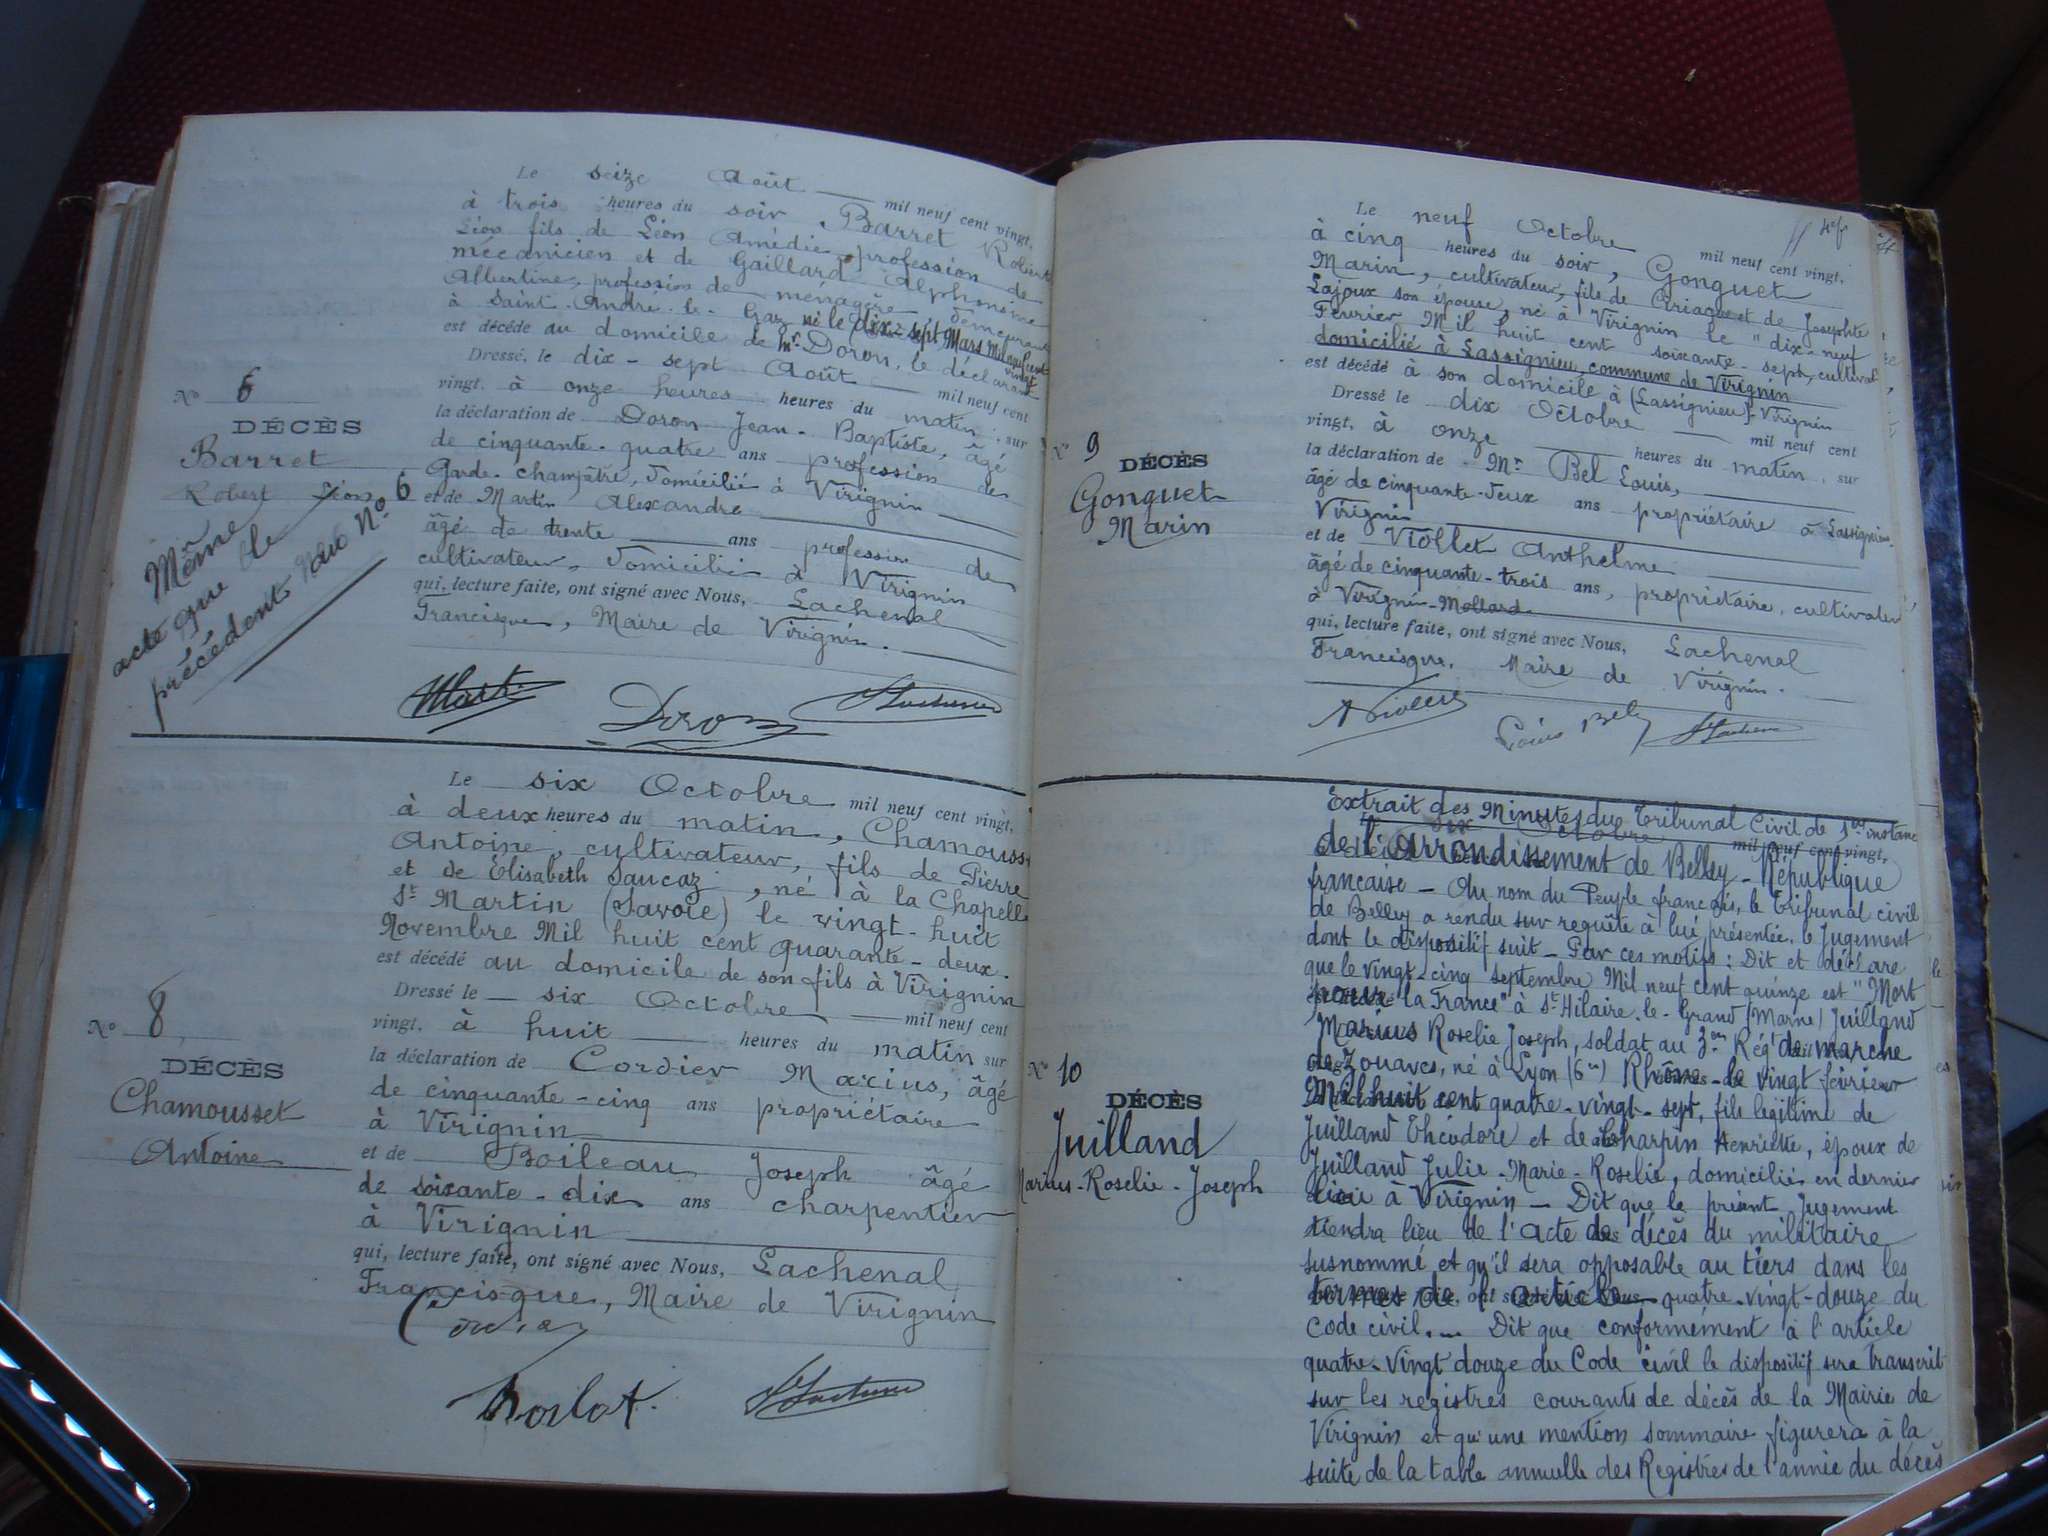 Le seize Août mil neuf cent vingt,
à trois heures du soir, Barret Robert
Léon fils de Léon Amédie, profession de
mécanicien et de Gaillard Alphonsine
Albertine, profession de ménagère, demeurant
à Saint-André-le-Gaz né le dix-sept Mars mil neuf cent vingt
est décédé au domicile de Mr Doron, le déclarant
Dressé, le dix-sept Août mil neuf cent
vingt, à onze heures heures du matin, sur
la déclaration de Doron Jean-Baptiste, âgé
de cinquante-quatre ans profession de
Garde-champêtre, domicilié à Virignin
et de Martin Alexandre
âgé de trente ans profession de
cultivateur, domicilié à Virignin
qui, lecture faite, ont signé avec Nous, Lachenal
Francisque, Maire de Virignin.
No 6
DÉCÈS
Barret
Robert Léon
Même
acte que le
précédent au No 6
Doron
Le six Octobre mil neuf cent vingt,
à deux heures du matin, Chamousset
Antoine, cultivateur, fils de Pierre
et de Elisabeth Saucaz, né à la Chapelle
St Martin (Savoie) le vingt-huit
Novembre Mil huit cent quarante-deux.
est décédé au domicile de son fils à Virignin
Dressé le six Octobre mil neuf cent
vingt, à huit heures du matin sur
la déclaration de Cordier Marius, âgé
de cinquante-cinq ans propriétaire
à Virignin
et de Boileau Joseph âgé
de soixante-dix ans charpentier
à Virignin
qui, lecture faite, ont signé avec Nous, Lachenal
Francisque, Maire de Virignin
No 8
DÉCÈS
Chamousset
Antoine
Le neuf Octobre mil neuf cent vingt,
à cinq heures du soir, Gonguet
Marin, cultivateur, fils de Ciriaque et de Josephte
Lajoux son épouse, né à Virignin le "dix-neuf
Février Mil huit cent soixante-sept, cultivat
domicilié à Lassignieu, commune de Virignin
est décédé à son domicile à (Lassignieu)-Virignin
Dressé le dix Octobre mil neuf cent
vingt, à onze heures du matin, sur
la déclaration de Mr Bel Louis,
âgé de cinquante-deux ans propriétaire à Lassignieu
Virignin
et de Viollet Anthelme
âgé de cinquante-trois ans, propriétaire, cultivateur
à Virignin-Mollard
qui, lecture faite, ont signé avec Nous, Lachenal
Francisque, Maire de Virignin.
No 9
DÉCÈS
Gonguet
Marin
Louis Bel
Extrait des Minutes du Tribunal Civil de 1ère instance
de l'Arrondissement de Belley - République
mil neuf cent vingt,
française - Au nom du Peuple français, le Tribunal civil
de Belley a rendu sur requête à lui présentée, le Jugement
dont le dispositif suit - Par ces motifs: Dit et déclare
que le vingt-cinq septembre Mil neuf cent quinze est "Mort
pour la France" à St Hilaire-le-Grand (Marne) Juilland
Marius Roselie Joseph, soldat au 3em Régt de marche
de Zouaves, né à Lyon (6em) Rhône-le vingt février
Mil huit cent quatre-vingt-sept, fils légitime de
Juilland Théodore et de Charpin Henriette, époux de
Juilland Julie-Marie-Roselie, domicilié en dernier
lieu à Virignin - Dit que le présent Jugement
tiendra lieu de l'acte de décès du militaire
susnommé et qu'il sera opposable au tiers dans les
termes de l'article quatre-vingt-douze du
Code civil. - Dit que conformément à l'article
quatre-vingt douze du Code civil le dispositif sera transcrit
sur les registres courants de décès de la Mairie de
Virignin et qu'une mention sommaire figurera à la
suite de la table annuelle des Registres de l'année du décès
No 10
DÉCÈS
Juilland
Marius-Roselie-Joseph